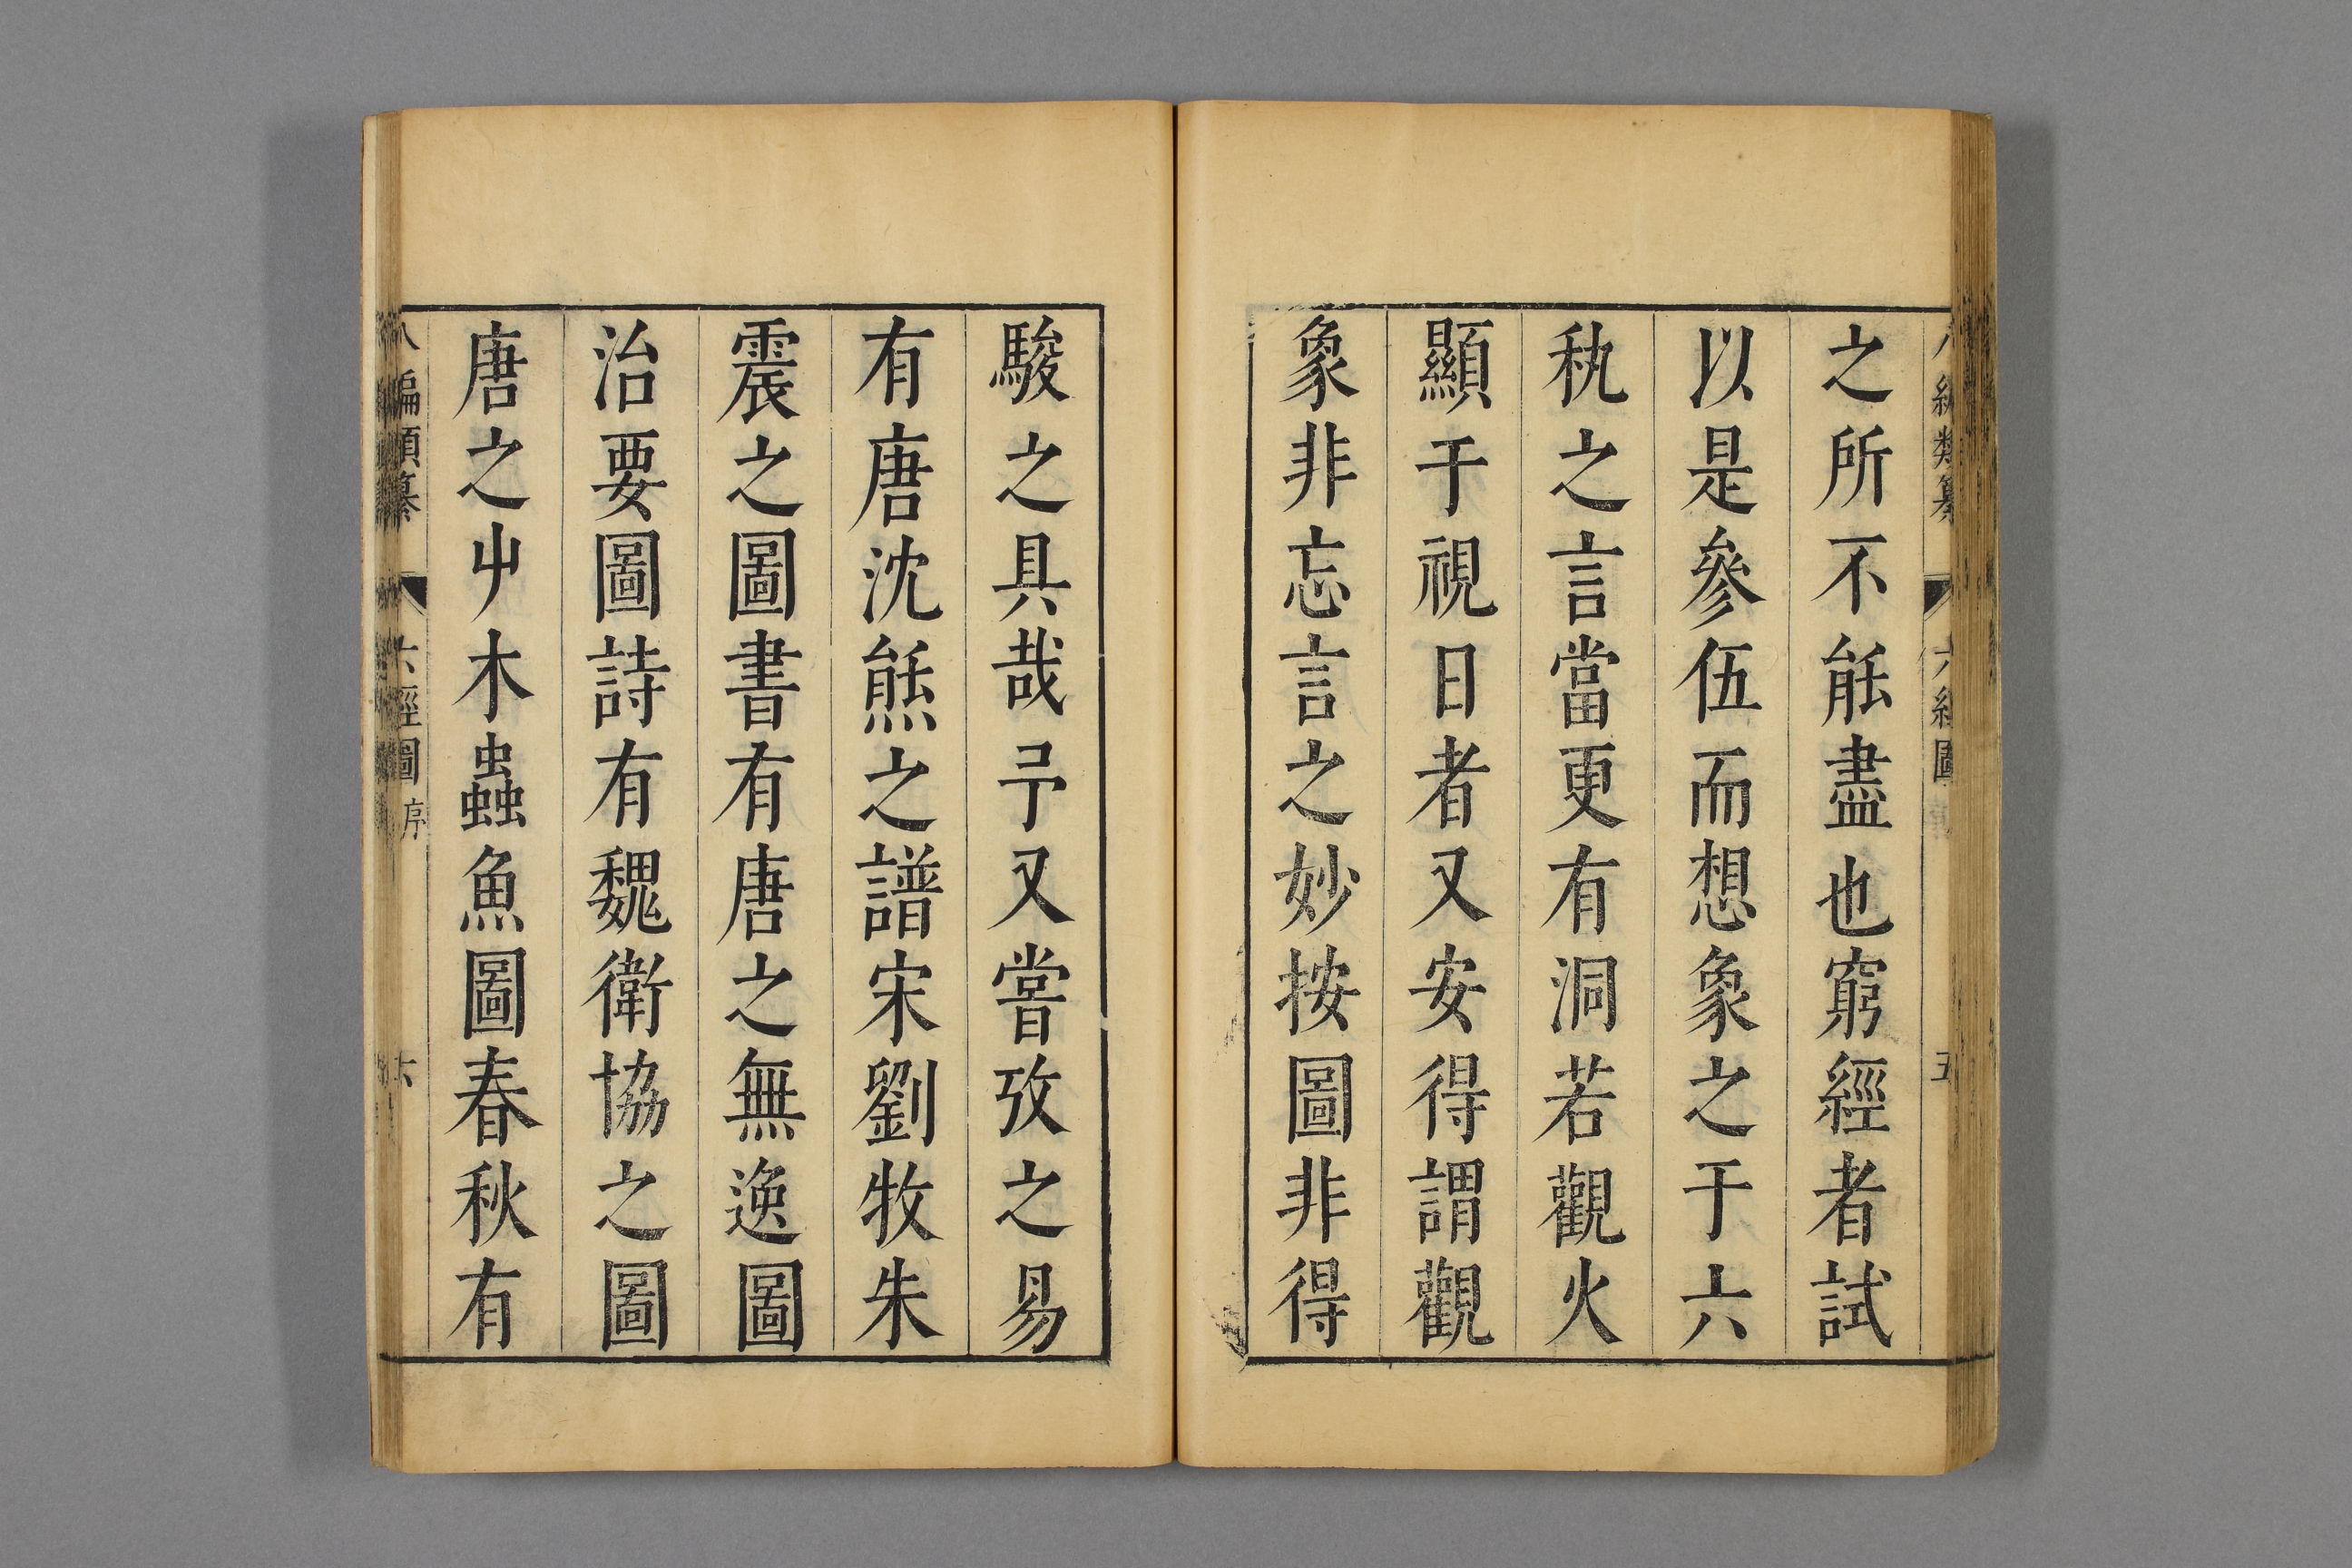 之所不能盡也窮經者試
以是參伍而想象之于六
秇之言當更有洞若觀火
顯于視日者又安得謂觀
象非忘言之妙按圖非得
駿之具哉予又嘗攷之易
有唐沈熊之譜宋劉牧朱
震之圖書有唐之無逸圖
治要圖詩有魏衛協之圖
唐之屮木蟲魚圖春秋有
八編類纂 六經圖 序 六